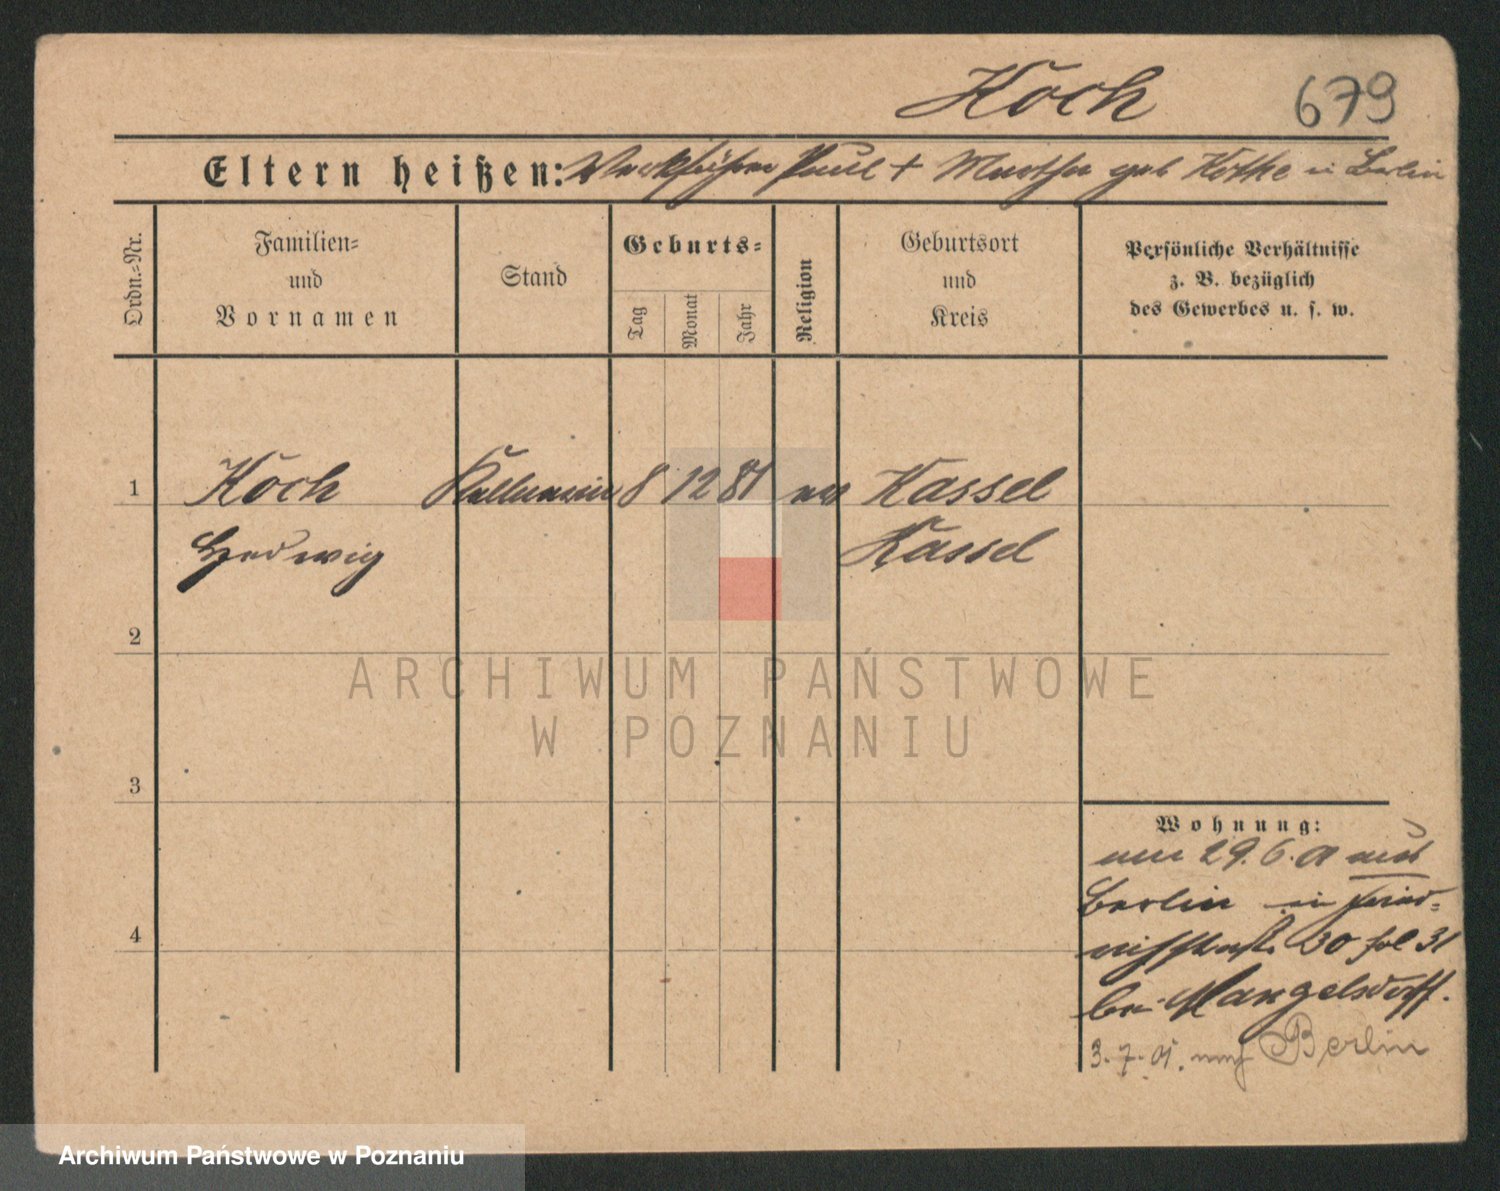 Koch 679
Eltern heißen: Werkführer Paul + Martha geb Kothe in Berlin
Ordn.=Nr.
Familien=
und
Vornamen
Stand
Geburts=
Tag
Monat
Jahr
Religion
Geburtsort
und
Kreis
Persönliche Verhältnisse
z. B. bezüglich
des Gewerbes u. s. w.
1 Koch Kellnerin 8 12 81 ev Kassel
Hedwig Kassel
2
ARCHIWUM PAŃSTWOWE
W POZNANIU
3
Wohnung:
am 29.6.01 aus
Berlin in
4
30 31
bei Mangelsdorff.
3.7.01. nach Berlin
Archiwum Państwowe w Poznaniu